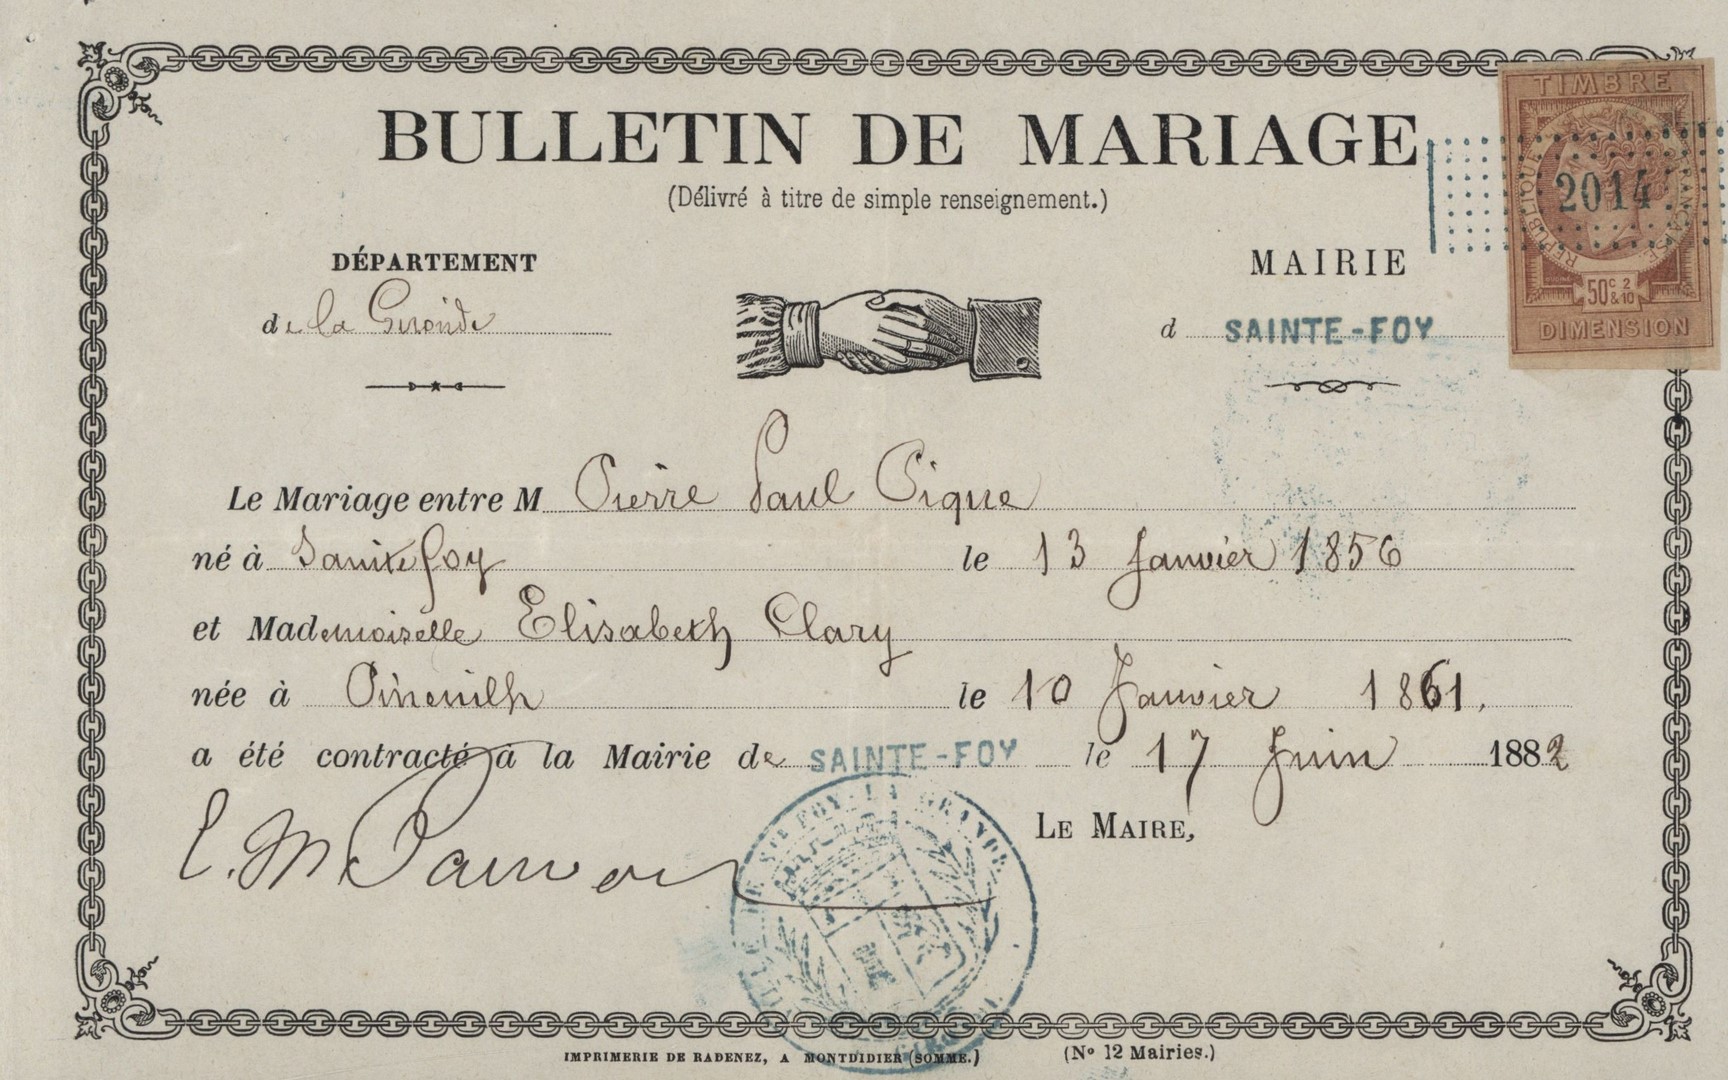 BULLETIN DE MARIAGE
(Délivré à titre de simple renseignement.)
TIMBRE
RÉPUBLIQUE FRANÇAISE
2014
50c 2 & 10
DIMENSION
DÉPARTEMENT
de la Gironde
MAIRIE
d SAINTE-FOY
Le Mariage entre M Pierre Paul Pique
né à Sainte foy le 13 Janvier 1856
et Mademoiselle Elisabeth Clary
née à Pineuilh le 10 Janvier 1861.
a été contracté à la Mairie de SAINTE-FOY le 17 Juin 1882
LE MAIRE,
STE FOY-LA-GRANDE
IMPRIMERIE DE RADENEZ, A MONTDIDIER (SOMME.)
(No 12 Mairies.)